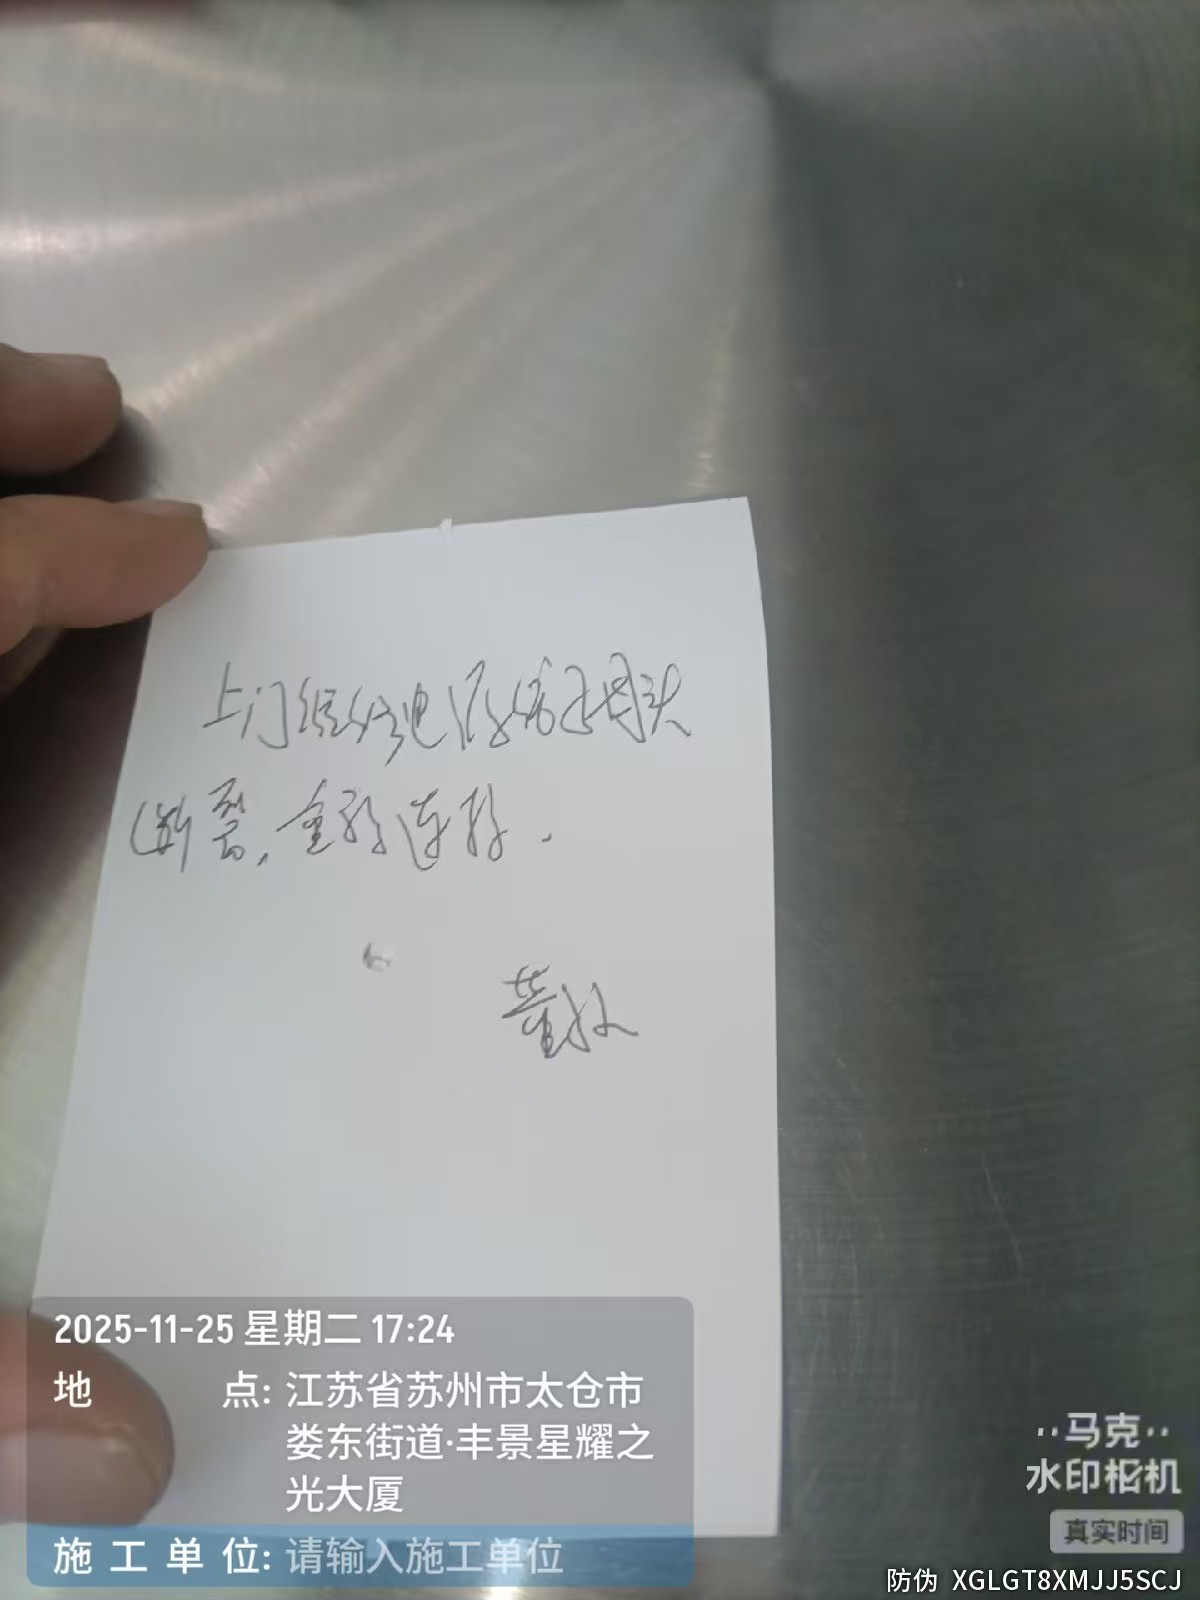 上门维修电源线子母头
断裂,重新连接.
2025-11-25 星期二 17:24
地 点: 江苏省苏州市太仓市
娄东街道·丰景星耀之
光大厦
施 工 单 位: 请输入施工单位
马克
水印相机
真实时间
防伪 XGLGT8XMJJ5SCJ